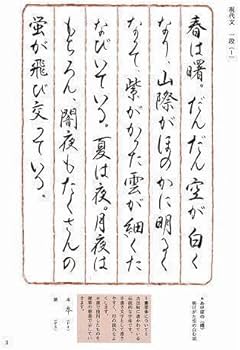 現代文 一段(1)
春は曙。だんだん空が白く
なり、山際がほのかに明るく
なって紫がかった雲が細くた
なびいている。夏は夜。月夜は
もちろん、闇夜もたくさんの
蛍が飛び交っている。
3